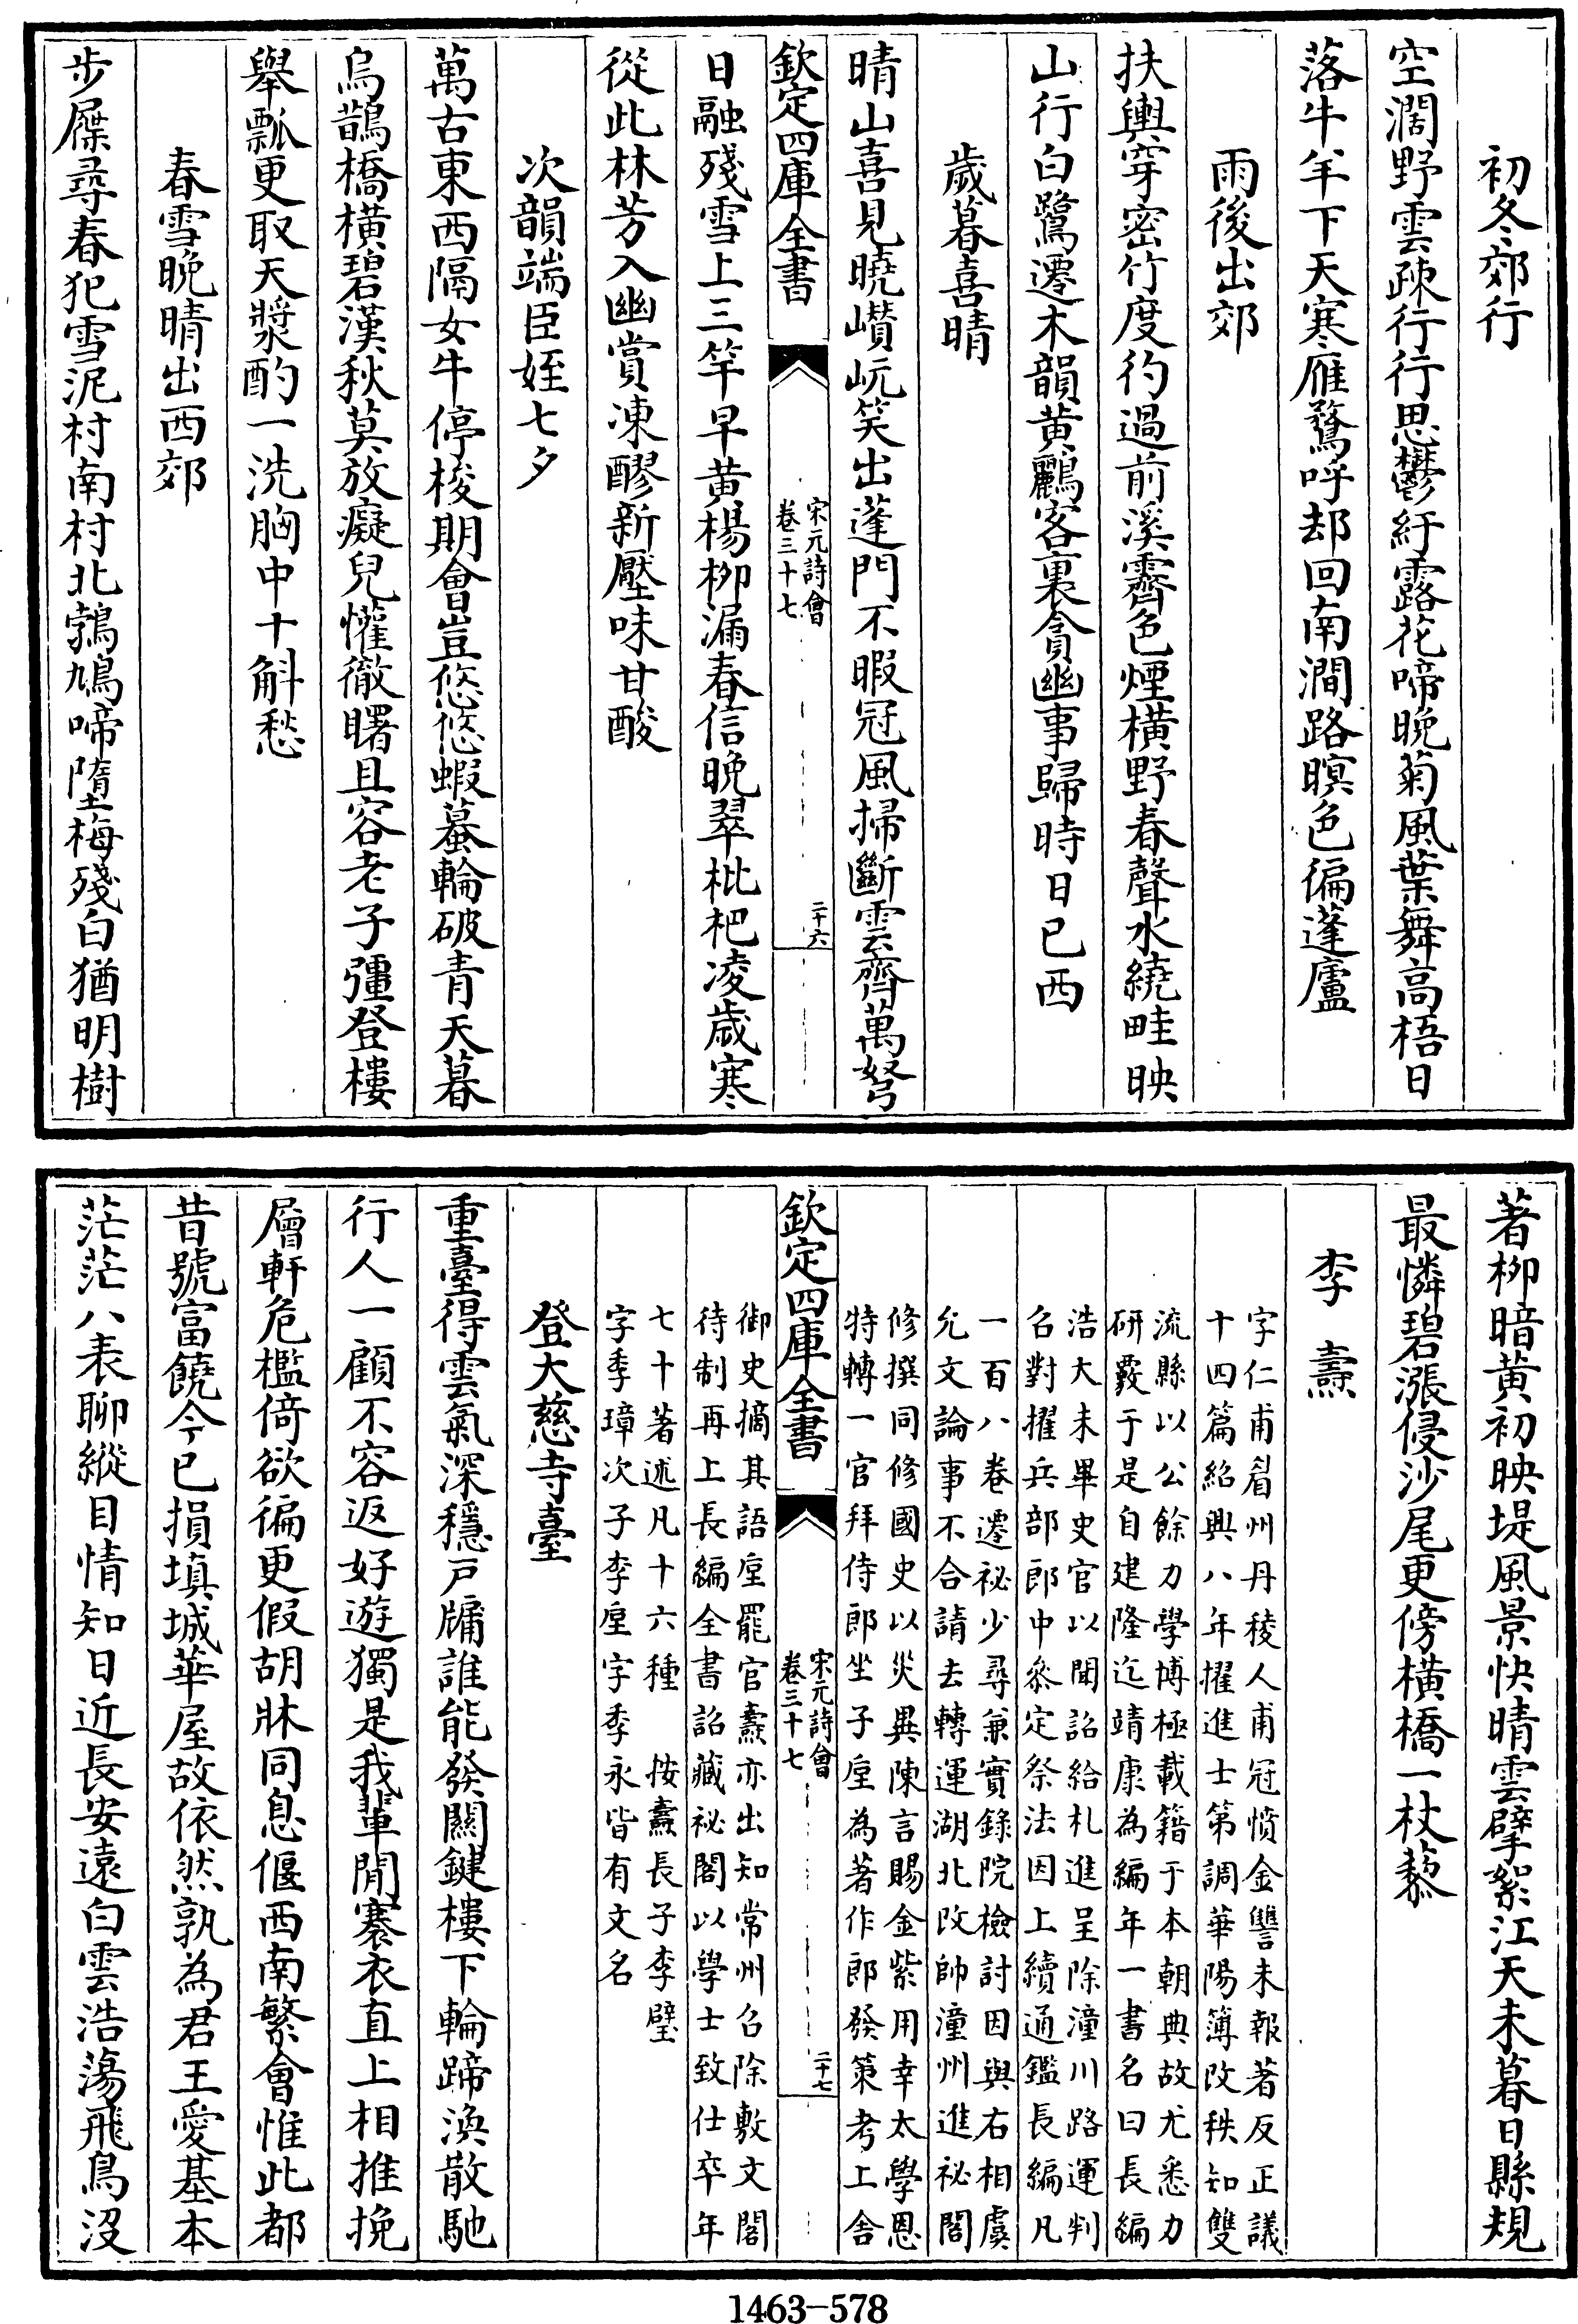 初冬郊行
空濶野雲疎行行思鬱紆露花啼晚菊風葉舞高梧日
落牛羊下天寒雁鶩呼却回南澗路暝色徧蓬廬
雨後出郊
扶輿穿密竹度彴過前溪霽色煙橫野春聲水繞畦映
山行白鷺遷木韻黃鸝客裏貪幽事歸時日已西
歲暮喜晴
晴山喜見曉巑岏笑出蓬門不暇冠風掃斷雲齊萬弩
欽定四庫全書
宋元詩會
卷三十七
二十六
日融殘雪上三竿早黃楊栁漏春信晚翠枇杷凌歲寒
從此林芳入幽賞凍醪新壓味甘酸
次韻端臣姪七夕
萬古東西隔女牛停梭期會豈悠悠蝦蟇輪破青天暮
烏鵲橋橫碧漢秋莫放癡兒懽徹曙且容老子彊登樓
舉瓢更取天漿酌一洗胸中十斛愁
春雪晚晴出西郊
步屧尋春犯雪泥村南村北鵓鳩啼墮梅殘白猶明樹
著栁暗黃初映堤風景快晴雲擘絮江天未暮日縣規
最憐碧漲侵沙尾更傍橫橋一杖藜
李燾
字仁甫眉州丹稜人甫冠憤金讐未報著反正議
十四篇紹興八年擢進士第調華陽簿改秩知雙
流縣以公餘力學博極載籍于本朝典故尤悉力
研覈于是自建隆迄靖康為編年一書名曰長編
浩大未畢史官以聞詔給札進呈除潼川路運判
召對擢兵部郎中叅定祭法因上續通鑑長編凡
一百八卷遷祕少尋兼實錄院檢討因與右相虞
允文論事不合請去轉運湖北改帥潼州進祕閣
修撰同修國史以災異陳言賜金紫用幸太學恩
特轉一官拜侍郎坐子垕為著作郎發策考上舍
欽定四庫全書
宋元詩會
卷三十七
二十七
御史摘其語垕罷官燾亦出知常州召除敷文閣
待制再上長編全書詔藏祕閣以學士致仕卒年
七十著述凡十六種　按燾長子李璧
字季璋次子李垕字季永皆有文名
登大慈寺臺
重臺得雲氣深穩戸牖誰能發關鍵樓下輪蹄渙散馳
行人一顧不容返好遊獨是我輩閒褰衣直上相推挽
層軒危檻倚欲徧更假胡牀同息偃西南繁會惟此都
昔號富饒今已損填城華屋故依然孰為君王愛基本
茫茫八表聊縱目情知日近長安遠白雲浩蕩飛鳥沒
1463-578